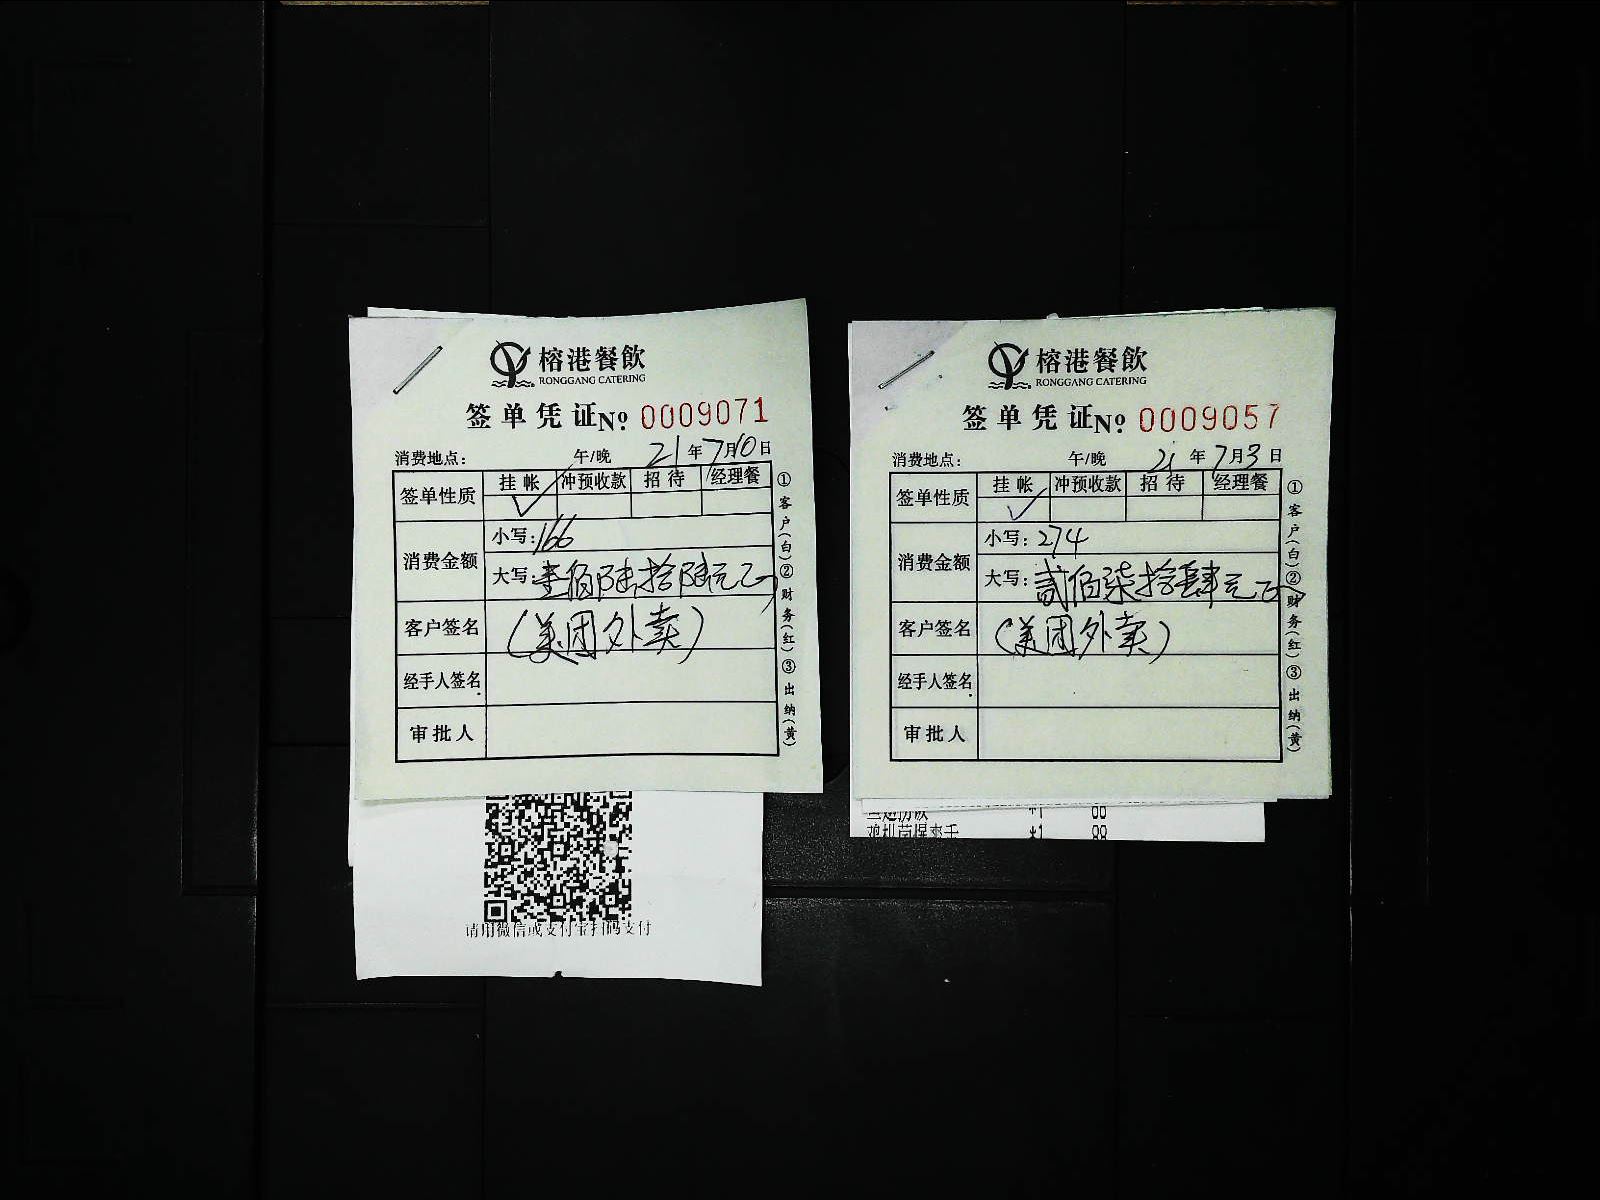 榕港餐飲
RONGGANG CATERING
签单凭证 No 0009071
消费地点： 午/晚 21年7月10日
签单性质 挂帐 冲预收款 招待 经理餐
✓
消费金额 小写：166
大写：壹佰陆拾陆元正
客户签名 (美团外卖)
经手人签名
审批人
①客户(白)②财务(红)③出纳(黄)
请用微信或支付宝扫码支付
榕港餐飲
RONGGANG CATERING
签单凭证 No 0009057
消费地点： 午/晚 21年7月3日
签单性质 挂帐 冲预收款 招待 经理餐
✓
消费金额 小写：274
大写：贰佰柒拾肆元正
客户签名 (美团外卖)
经手人签名
审批人
①客户(白)②财务(红)③出纳(黄)
*1 88